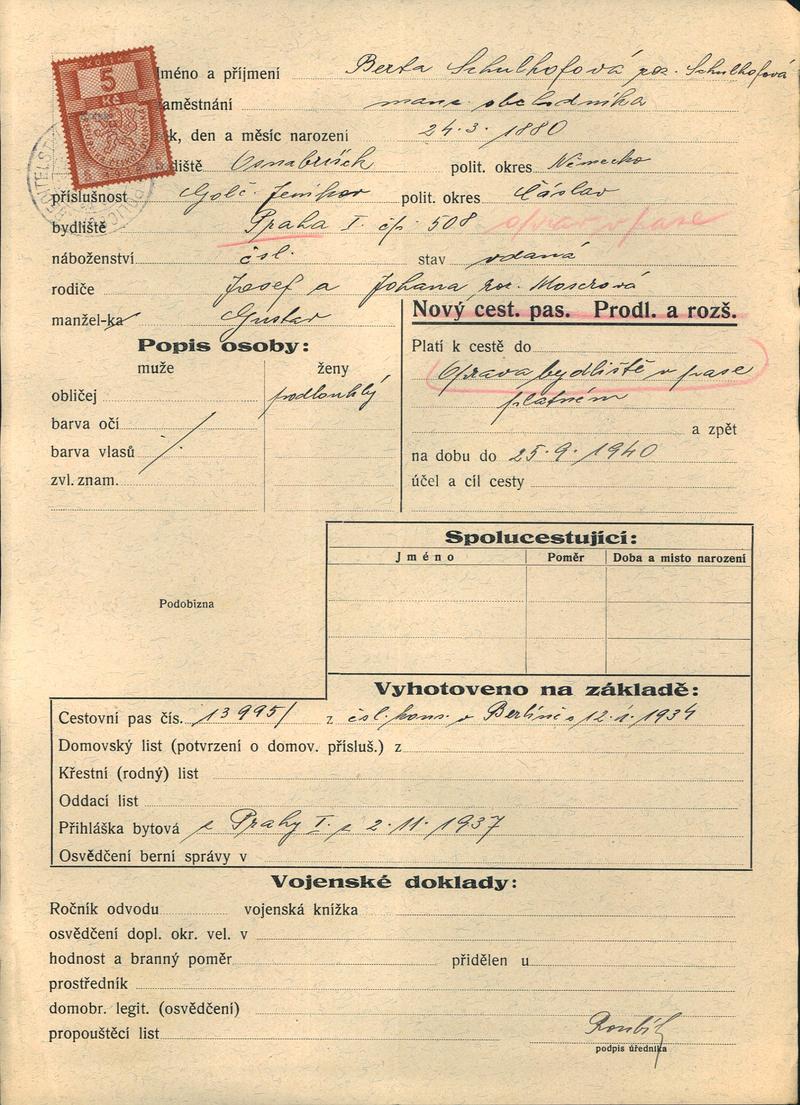 KOLEK
5
Kč
Jméno a příjmení Berta Schulhofová roz. Schulhofová
zaměstnání obchodníka
rok, den a měsíc narození 24.3.1880
Osnabrück polit. okres Německo
příslušnost Golč. Jeníkov polit. okres Čáslav
bydliště Praha I. čp. 508 oprav. v pase
náboženství čsl. stav vdaná
rodiče Josef a Johana roz. Moserová
manžel-ka Gustav
Nový cest. pas. Prodl. a rozš.
Popis osoby:
muže ženy
obličej podlouhlý
barva očí
barva vlasů
zvl. znam.
Platí k cestě do
Oprava bydliště v pase
platném
a zpět
na dobu do 25.9.1940
účel a cíl cesty
Spolucestující:
Jméno Poměr Doba a misto narození
Podobizna
Vyhotoveno na základě:
Cestovní pas čís. 13995/ z čsl. kons. v Berlíně 12.1.1934
Domovský list (potvrzení o domov. přísluš.) z
Křestní (rodný) list
Oddací list
Přihláška bytová z Prahy I. z 2.11.1937
Osvědčení berní správy v
Vojenské doklady:
Ročník odvodu vojenská knížka
osvědčení dopl. okr. vel. v
hodnost a branný poměr přidělen u
prostředník
domobr. legit. (osvědčení)
propouštěcí list
podpis úředníka